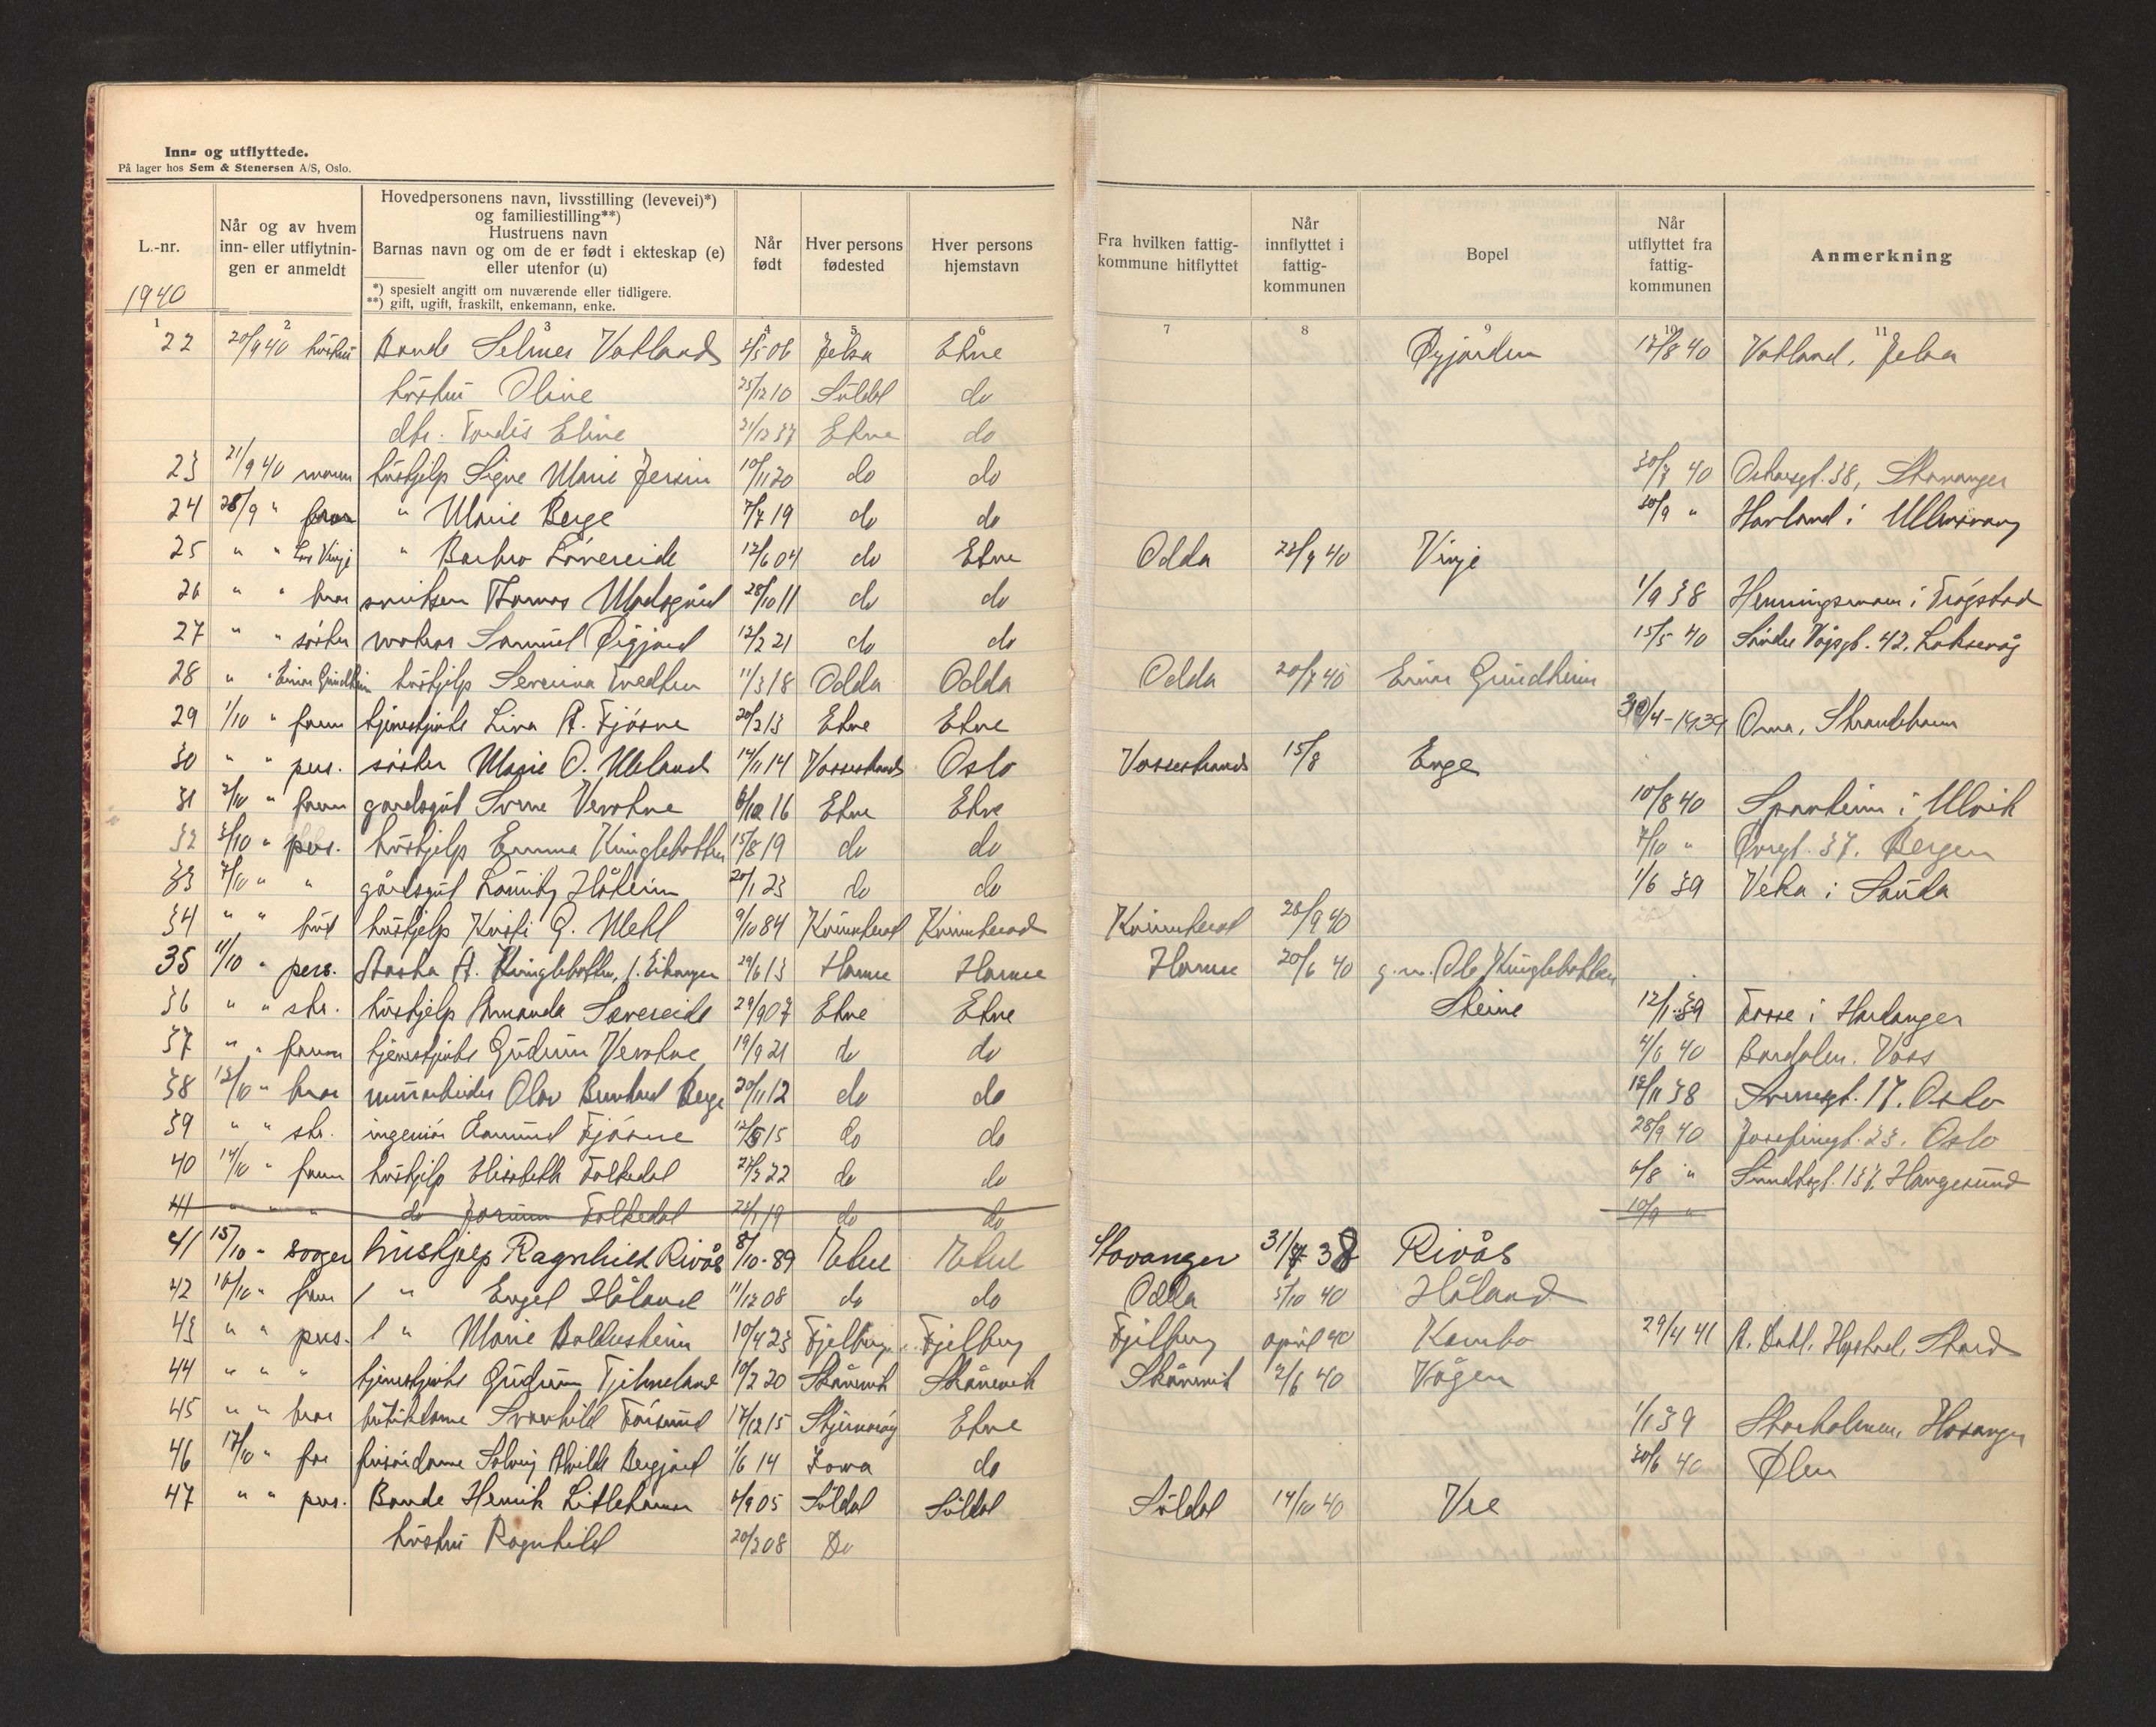 Inn- og utflyttede.
På lager hos Sem & Stenersen A/S, Oslo.
L.-nr.
1940
Når og av hvem inn- eller utflytnin-gen er anmeldt
Hovedpersonens navn, livsstilling (levevei)*) og familiestilling**)
Hustruens navn
Barnas navn og om de er født i ekteskap (e) eller utenfor (u)
*) spesielt angitt om nuværende eller tidligere.
**) gift, ugift, fraskilt, enkemann, enke.
Når født
Hver persons fødested
Hver persons hjemstavn
Fra hvilken fattig-kommune hitflyttet
Når innflyttet i fattig-kommunen
Bopel
Når utflyttet fra fattig-kommunen
Anmerkning
1 2 3 4 5 6 7 8 9 10 11
22 20/9 40 hustru Bonde Selmer Vatland 5/5 06 Jelsa Etne Øygarden 17/8 40 Vatland, Jelsa
hustru Oline 25/12 10 Suldal do
dtr. Tordis Eline 21/12 37 Etne do
23 21/9 40 mann hushjelp Signe Marie Jersin 10/11 20 do do 30/7 40 Oskarsgt. 38, Stavanger
24 28/9 " faren " Marie Berge 7/7 19 do do 20/9 " Hovland i Ullensvang
25 " " Lars Vinje " Barbro Løvereide 12/6 04 do Etne Odda 22/9 40 Vinje
26 " " bror Thomas 28/10 11 do do 1/9 38 i Trøgstad
27 " " søster Samuel Øigjord 12/2 21 do do 15/5 40 42, Laksevåg
28 " " Einar Grindheim hushjelp Severina Tvedten 11/3 18 Odda Odda Odda 20/7 40 Einar Grindheim
29 1/10 " faren tjenestjente Lina A. Fjøsne 20/2 13 Etne Etne 30/4-1939 Oma, Strandebarm
30 " " pers. søster Marie O. 14/11 14 Vossestrand Oslo Vossestrand 15/8 Enge
31 2/10 " faren gardsgut Sverre Versland 6/12 16 Etne Etne 10/8 40 Sponheim i Ulvik
32 3/10 " pers. hushjelp Emma Kringlebotten 15/8 19 do do 7/10 " Øvregt. 37. Bergen
33 7/10 " " gårdsgut Håheim 20/1 23 do do 1/6 39 Veka i Sauda
34 " " hushjelp Kristi G. Mehl 9/10 84 Kvinnherad Kvinnherad Kvinnherad 28/9 40
35 11/10 " pers. Kringlebotten, f. Eikanger 29/6 13 Hamre Hamre Hamre 20/6 40 g.m. Ole Kringlebotten
36 " " str. hushjelp Amanda Sævereide 29/9 07 Etne Etne Steine 12/1 39 Tosse i Hardanger
37 " " faren tjenestjente Gudrun 19/9 21 do do 4/6 40 Bordalen. Voss
38 12/10 " bror Olav Bernhard Berge 20/11 12 do do 12/11 38 17. Oslo
39 " " str. ingeniør Aamund Fjøsne 12/5 15 do do 28/9 40 Josefinegt. 23. Oslo
40 14/10 " faren hushjelp Elisabeth Folkedal 27/3 22 do do 6/8 " Haugesund
41 " " " do Jorunn Folkedal 24/1 19 do do 10/9 "
41 15/10 - hushjelp Ragnhild Rivås 8/10-89 Etne Etne Stavanger 31/7 38 Rivås
42 16/10 " faren " Engel Håland 11/12 08 do do Odda 5/10 40 Håland
43 " " pers. " Marie Baldersheim 10/4 23 Fjelberg Fjelberg Fjelberg april 40 Kambo 29/4 41 A. Dahl, Skard
44 " " " tjenestjente Gudrun Tjelmeland 10/2 20 Skånevik Skånevik Skånevik 2/6 40 Vågen
45 " " bror butikdame Svanhild 17/12 15 Etne 1/1 39 Storholmen, Hosanger
46 17/10 " far frisørdame Solveig Alvilde Bergjord 1/6 14 Iowa do 30/6 40 Ølen
47 " " pers. Bonde Henrik Litlehamar 4/9 05 Suldal Suldal Suldal 14/10 40 Vee
hustru Ragnhild 20/2 08 Do